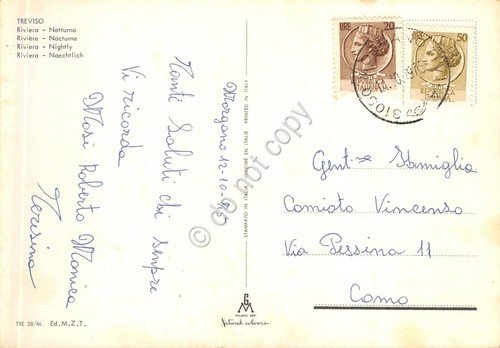 TREVISO
Riviera - Notturno
Rivière - Nocturne
Riviera - Nightly
Riviera - Naechtlich
Morgano 12-10-
Tanti Saluti chi sempre
Vi ricorda
Mosi Roberto Monica
Teresina
TRE 28/46 Ed.M.Z.T.
STAMPATO IN ITALIA - IMPRIMÉ EN ITALIE - PRINTED IN ITALY
G M
MILANO
Natural colours
LIRE 20
50
31050
Gent-ze Famiglia
Comioto Vincenso
Via Pessina 11
Como
do not copy